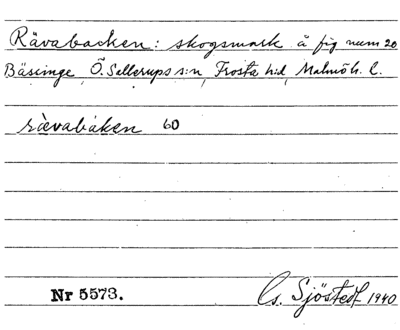 Rävabacken: skogsmark å fig num 20
Bäsinge, Ö. Sallerups s:n, Frosta h:d, Malmöh. l.
rävabaken 60
Nr 5573.
G. Sjöstedt 1940